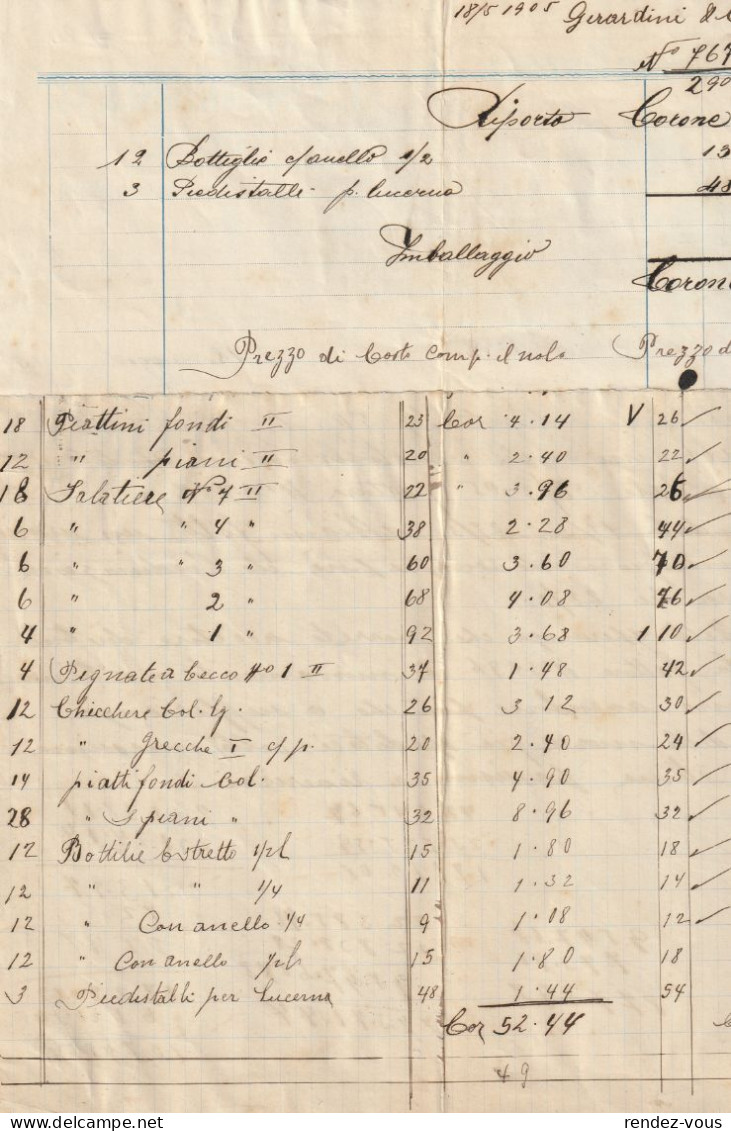 18/5 1905 Girardini &
No 767
290
Riporto Corone
12 Bottiglie c/anello 1/2 15
3 Piedistalli p. lucerna 48
Imballaggio
Corone
Prezzo di Costo comp. il nolo Prezzo d
18 Piattini fondi II 23 Cor 4.14 V 26 ✓
12 " piani II 20 " 2.40 22 ✓
18 Salatiere No 7 II 22 " 3.96 26 ✓
6 " " 4 " 38 2.28 44 ✓
6 " " 3 " 60 3.60 70 ✓
6 " 2 " 68 4.08 76 ✓
4 " 1 " 92 3.68 110 ✓
4 Pignate a becco No 1 II 37 1.48 42 ✓
12 Chicchere Col. 26 3 12 30 ✓
12 " Grecche I c/p. 20 2.40 24 ✓
14 piatti fondi Col. 35 4.90 35 ✓
28 " piani " 32 8.96 32 ✓
12 Bottilie 15 1.80 18 ✓
12 " " 1/4 11 1.32 14 ✓
12 " Con anello 1/4 9 1.08 12 ✓
12 " Con anello 15 1.80 18
3 Piedistalli per Lucerna 48 1.44 54
Cor 52.44
49
rendez-vous